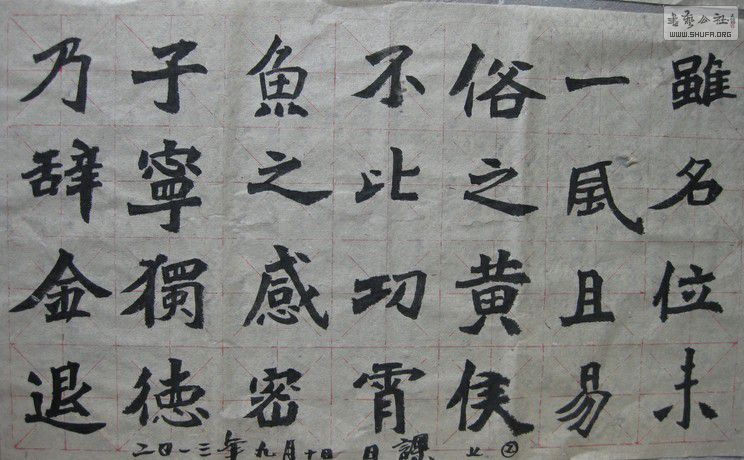 雖名位未
一風且易
俗之黄侯
不比功霄
魚之感密
子寧獨徳
乃辞金退
二〇一三年九月十日 日課 ②
書藝公社
WWW.SHUFA.ORG